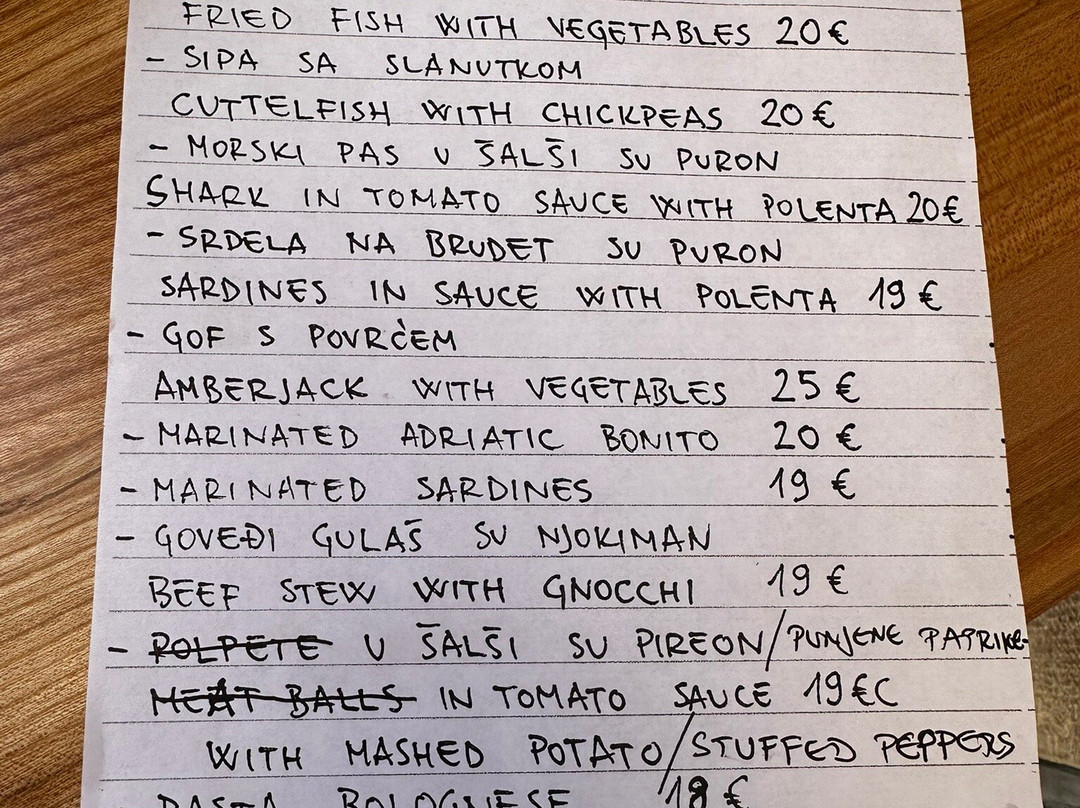 FRIED FISH WITH VEGETABLES 20€
- SIPA SA SLANUTKOM
CUTTELFISH WITH CHICKPEAS 20€
- MORSKI PAS U ŠALŠI SU PURON
SHARK IN TOMATO SAUCE WITH POLENTA 20€
- SRDELA NA BRUDET SU PURON
SARDINES IN SAUCE WITH POLENTA 19€
- GOF S POVRĆEM
AMBERJACK WITH VEGETABLES 25€
- MARINATED ADRIATIC BONITO 20€
- MARINATED SARDINES 19€
- GOVEĐI GULAŠ SU NJOKIMAN
BEEF STEW WITH GNOCCHI 19€
- POLPETE U ŠALŠI SU PIREON/PUNJENE PAPRIKE
MEAT BALLS IN TOMATO SAUCE 19€C
WITH MASHED POTATO/STUFFED PEPPERS
PASTA BOLOGNESE 18€